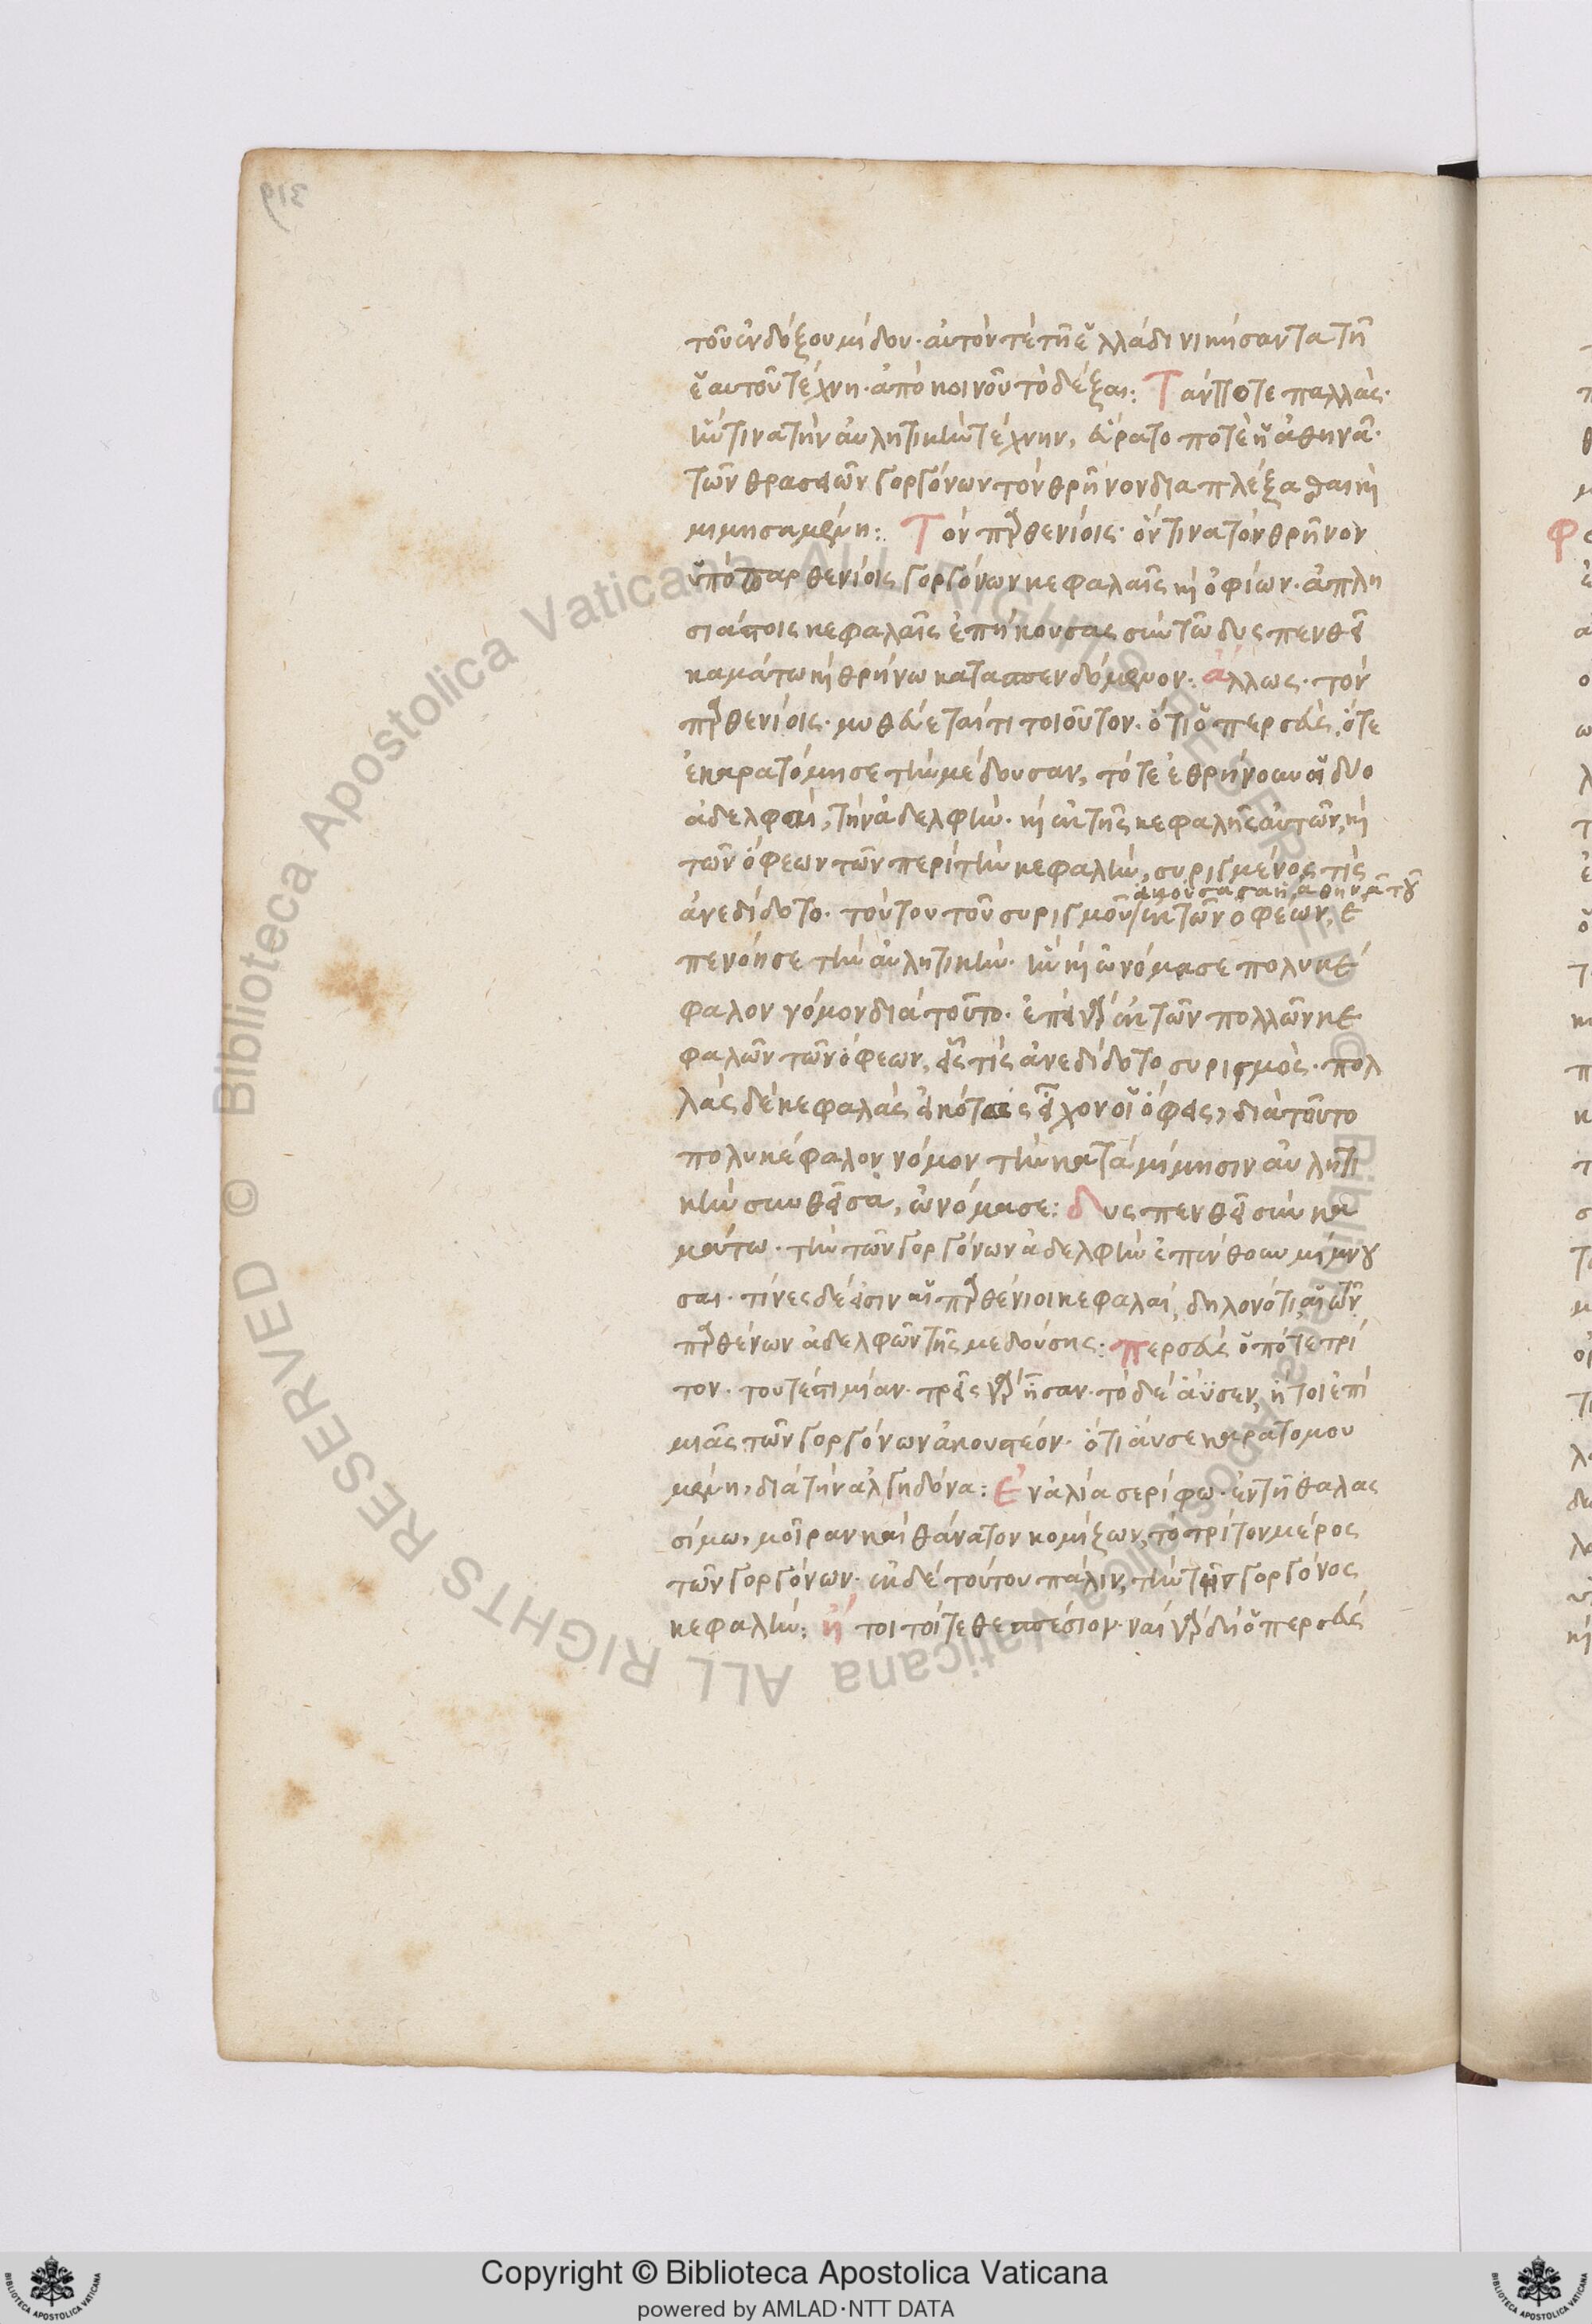 τοῦ ἐνδόξου μίδου· αὐτόν τὲ τῆ ἑλλάδι νικήσαντα τῆ
ἑαυτοῦ τέχνη· ἀπὸ κοινοῦ τὸ δέξαι: Τάν ποτε παλλὰς·
ἥντινα τὴν αὐλητικὴν τέχνην, εὕρατο ποτὲ ἡ ἀθηνᾶ·
τῶν θρασειῶν γοργόνων τὸν θρῆνον διαπλέξασα καὶ
μιμησαμένη: Τὸν παρθενίοις· ὅντινα τὸν θρῆνον
ὑπὸ παρθενίοις γοργόνων κεφαλαῖς καὶ ὀφίων· ἀπλη
σιάστοις κεφαλαῖς ἐπήκουσας σὺν τῶ δυσπενθεῖ
καμάτω καὶ θρήνω κατασπενδόμενον: ἄλλως· τὸν
παρθενίοις· μυθεύεταί τι τοιοῦτον· ὅτι ὁ περσεὺς, ὅτε
ἐκαρατόμησε τὴν μέδουσαν, τότε ἐθρήνουν αἱ δύο
ἀδελφαὶ, τὴν ἀδελφὴν· καὶ ἐκ τῆς κεφαλῆς αὐτῶν, καὶ
τῶν ὄφεων τῶν περὶ τὴν κεφαλὴν, συριγμένος τίς
ἀκούσασα ἡ ἀθηνᾶ τοῦ
ἀνεδίδοτο· τούτου τοῦ συριγμοῦ ἐκ τῶν ὀφέων, ἐ
πενόησε τὴν αὐλητικὴν· ἣν καὶ ὠνόμασε πολυκέ
φαλον νόμον διὰ τοῦτο· ἐπεὶ γὰρ ἐκ τῶν πολλῶν κε
φαλῶν τῶν ὄφεων, εἷς τίς ἀνεδίδοτο συρισμὸς· πολ
λὰς δὲ κεφαλὰς εἰκότως εἶχον οἱ ὄφεις, διὰ τοῦτο
πολυκέφαλον νόμον τὴν κατὰ μίμησιν αὐλητι
κὴν συνθεῖσα, ὠνόμασε: δυσπενθεῖ σὺν κα
μάτω· τὴν τῶν γοργόνων ἀδελφὴν ἐπένθουν μίμνου
σαι· τίνες δέ εἰσιν αἱ παρθένιοι κεφαλαί, δηλονότι, αἱ τῶν
παρθένων ἀδελφῶν τῆς μεδούσης: περσεὺς ὁπότε τρί
τον· τουτέστι μίαν· τρεῖς γὰρ ἦσαν· τὸ δὲ ἄϋσεν, ἤτοι ἐπὶ
μιᾶς τῶν γοργόνων ἀκουστέον· ὅτι ἄυσε καρατομου
μένη, διὰ τὴν ἀλγηδόνα: Ἐναλία σερίφω· ἐν τῆ θαλας
σίμω, μοῖραν καὶ θάνατον κομίζων, τὸ τρίτον μέρος
τῶν γοργόνων· ἐκ δὲ τούτου πάλιν, τὴν τῶν γοργόνος
κεφαλὴν: ἤτοι τό τε θεσπέσιον· ναὶ γὰρ δὴ ὁ περσεὺς